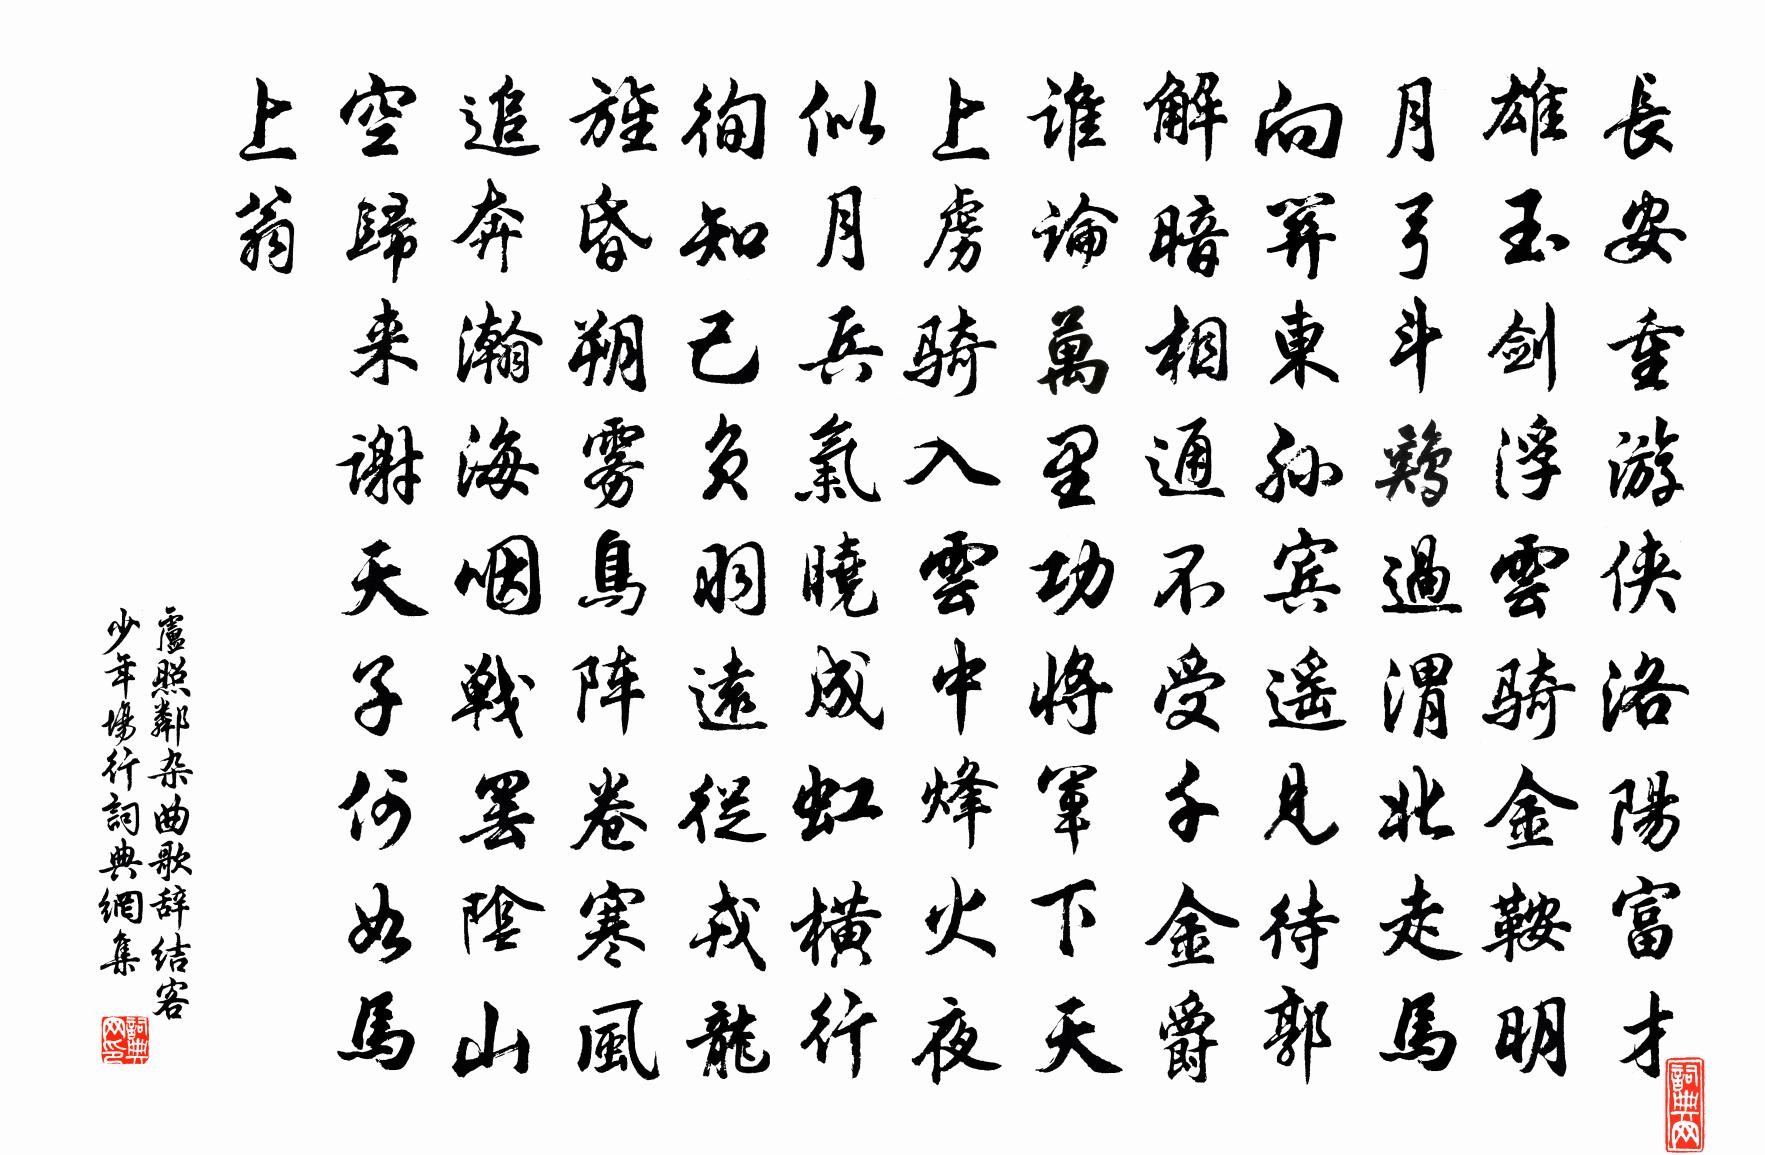 長安重游侠洛陽富才
雄玉剑浮雲骑金鞍明
月弓斗鷄過渭北走馬
向關東孙宾遥見待郭
解暗相通不受千金爵
谁論萬里功将軍下天
上虏骑入雲中烽火夜
似月兵氣曉成虹横行
徇知己负羽遠從戎龍
旌昏朔雾鳥阵卷寒風
追奔瀚海咽戰罢陰山
空歸来谢天子何如馬
上翁
盧照鄰杂曲歌辞结客
少年場行詞典網集
詞典网
詞典网印